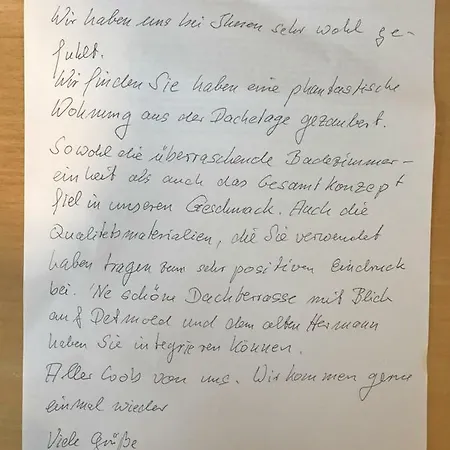 Wir haben uns bei Ihnen sehr wohl ge-
fühlt.
Wir finden Sie haben eine phantastische
Wohnung aus der Dachetage gezaubert.
Sowohl die überraschende Badezimmer-
einheit als auch das Gesamtkonzept
fiel in unseren Geschmack. Auch die
Qualitätsmaterialien, die Sie verwendet
haben tragen zum sehr positiven Eindruck
bei. 'Ne schöne Dachterrasse mit Blick
auf Detmold und dem alten Hermann
haben Sie integrieren können.
Aller Lob von uns. Wir kommen gerne
einmal wieder
Viele Grüße